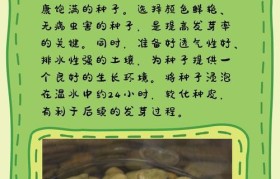 康饱满的种子。选择颜色鲜艳、
无病虫害的种子，是提高发芽率
的关键。同时，准备好透气性好、
排水性强的土壤，为种子提供一
个良好的生长环境。将种子浸泡
在温水中约24小时，软化种皮，
有利于后续的发芽过程。